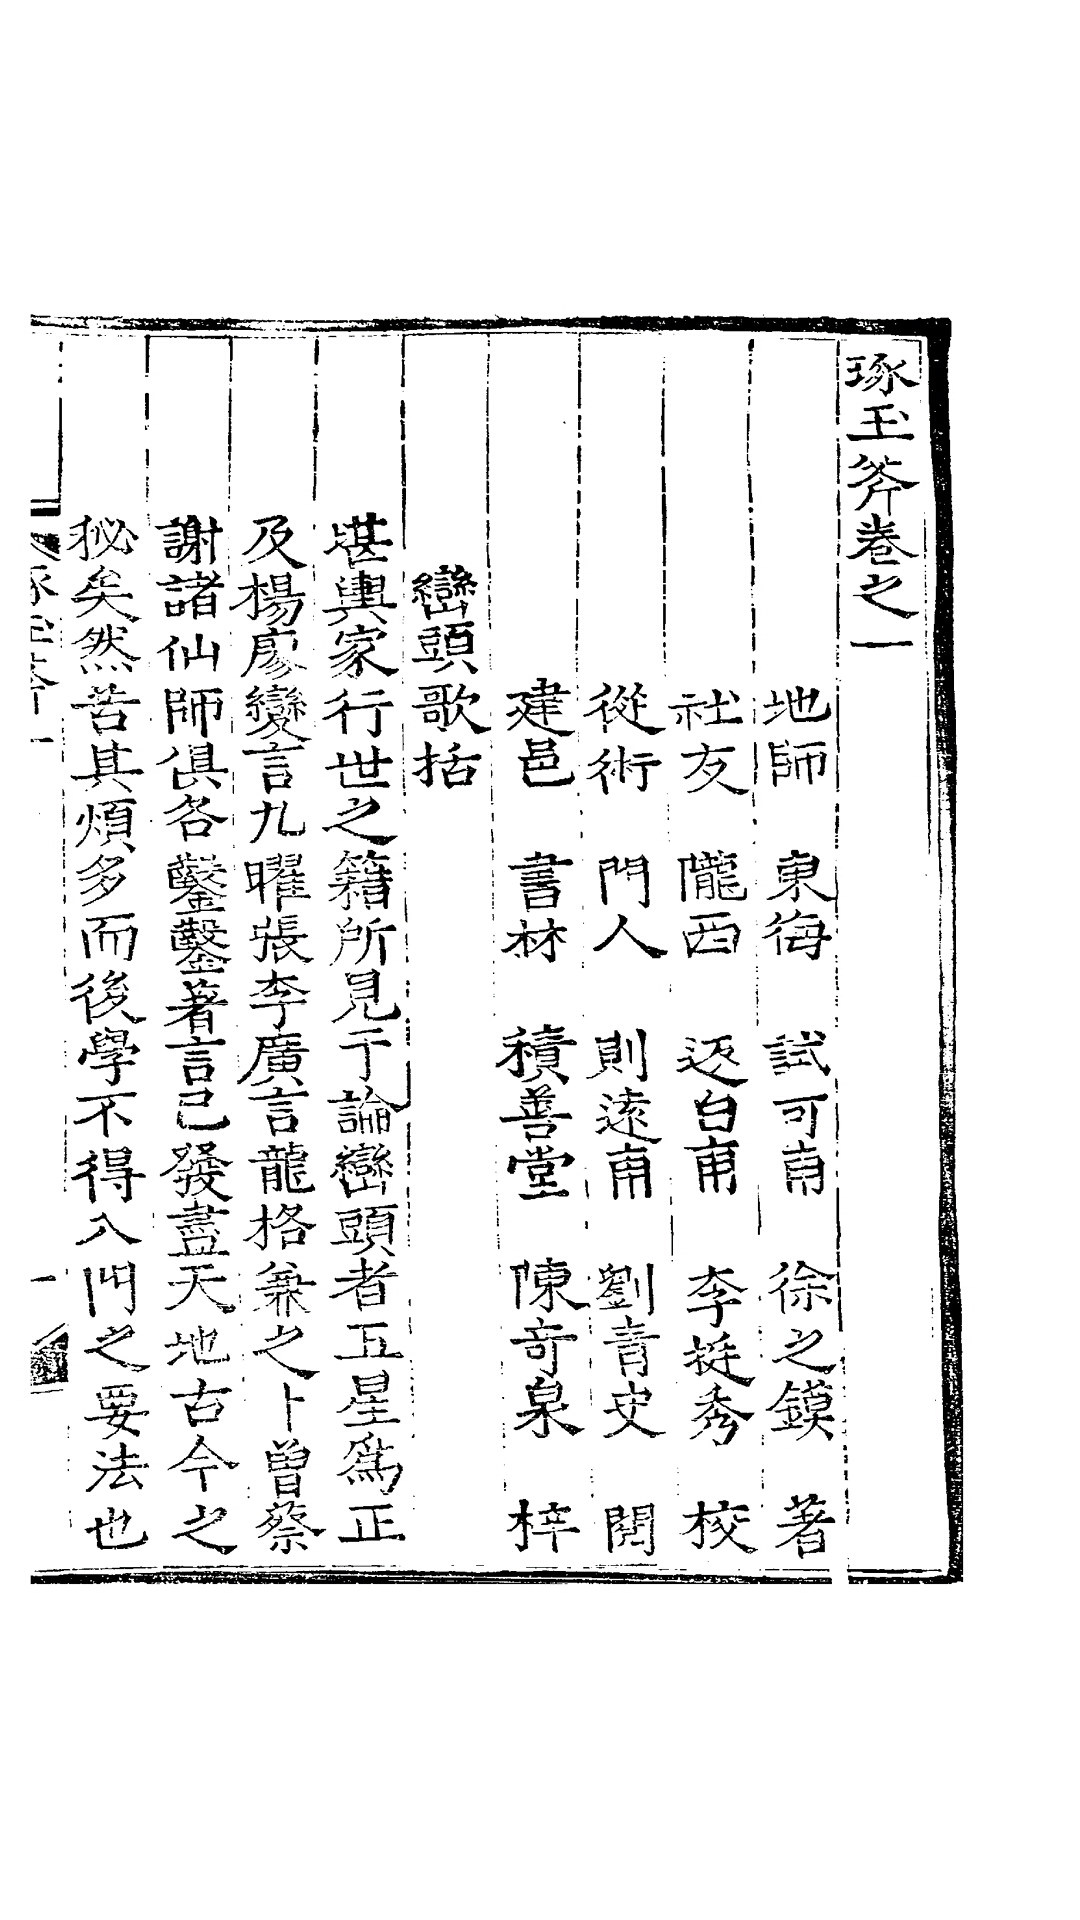 琢玉斧卷之一
地師　東海　試可甫　徐之鏌　著
社友　隴西　返台甫　李挺秀　校
從術　門人　則遠甫　劉青史　閱
建邑　書林　積善堂　陳奇泉　梓
巒頭歌括
堪輿家行世之籍所見于論巒頭者五星爲正
及楊廖變言九曜張李廣言龍格兼之卜曾蔡
謝諸仙師俱各鑿鑿著言已發盡天地古今之
秘矣然苦其煩多而後學不得入門之要法也
琢玉斧 一
一